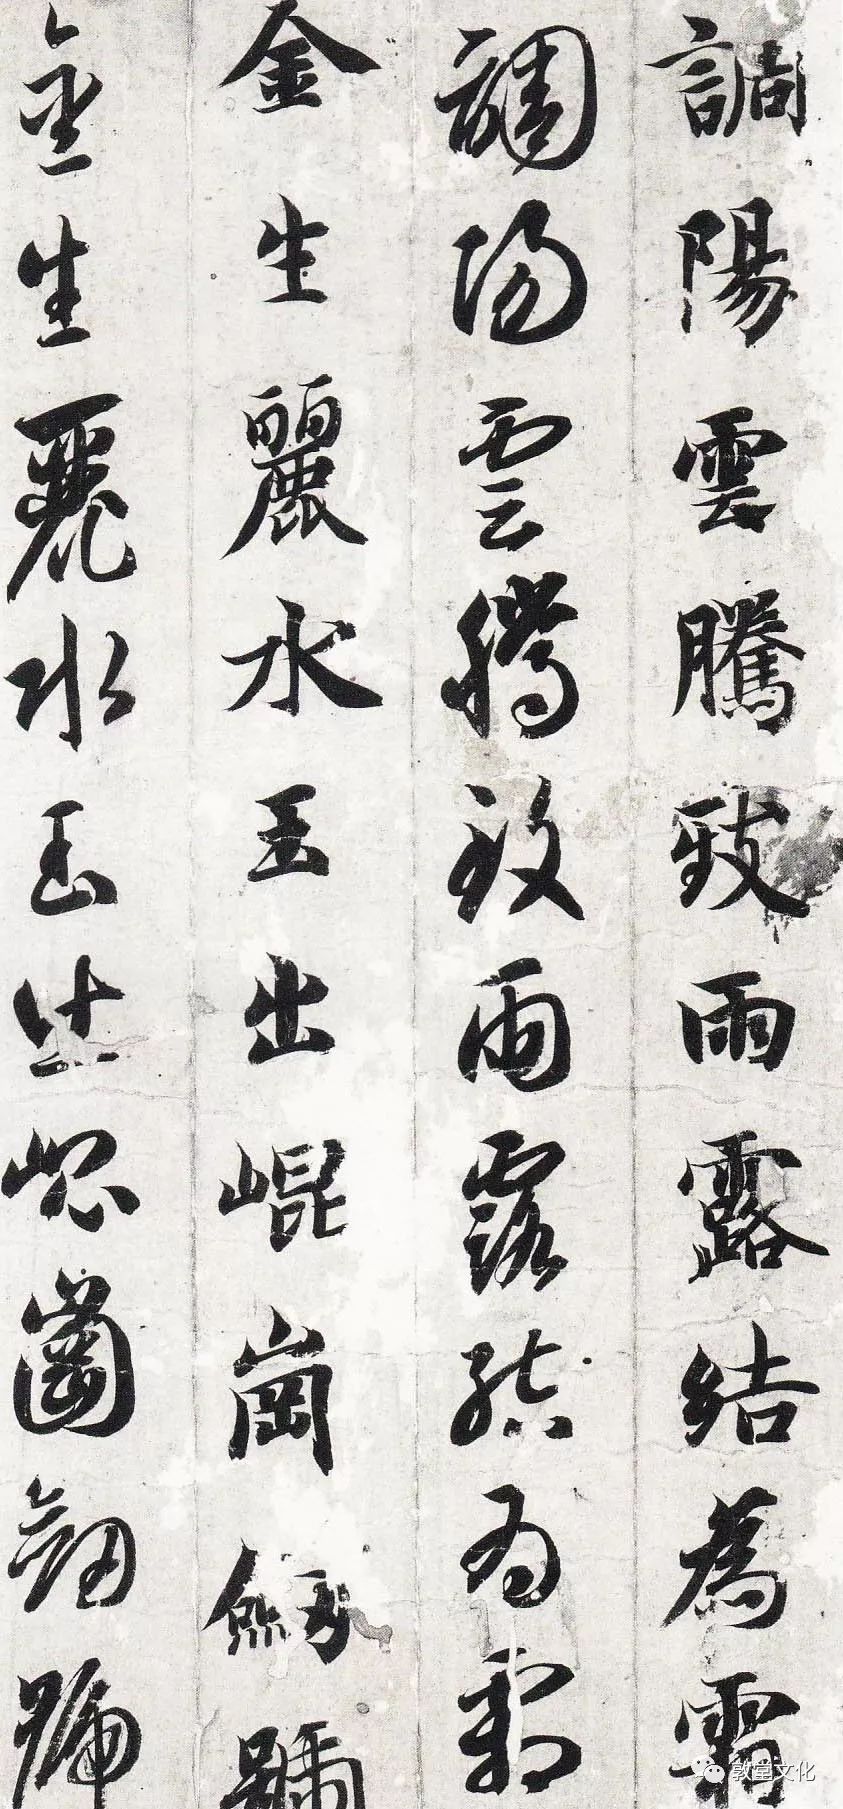 調陽雲騰致雨露結為霜
調陽雲騰致雨露結為霜
金生麗水玉出崐崗劒號
金生麗水玉出崐崗劒號
敦堂文化